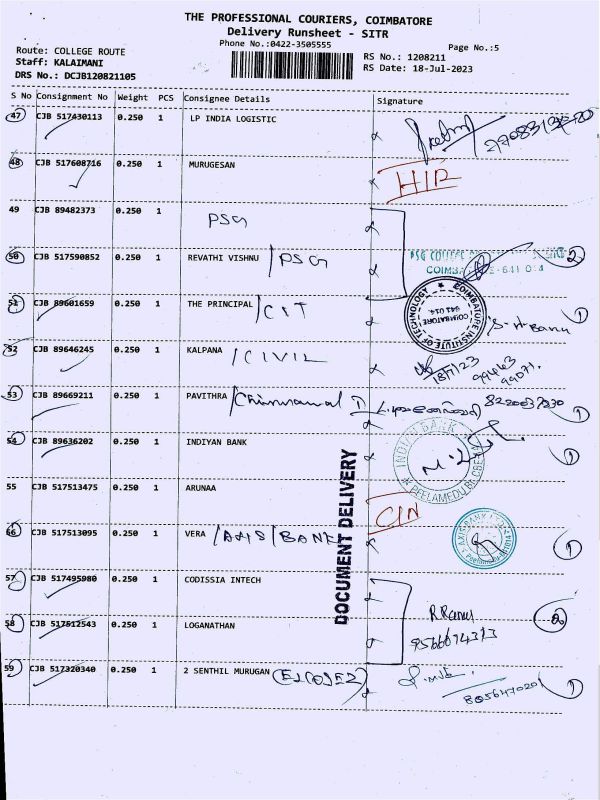 THE PROFESSIONAL COURIERS, COIMBATORE
Delivery Runsheet - SITR
Phone No.:0422-3505555
Page No.:5
Route: COLLEGE ROUTE
Staff: KALAIMANI
DRS No.: DCJB120821105
RS No.: 1208211
RS Date: 18-Jul-2023
S No Consignment No Weight PCS Consignee Details Signature
47 CJB 517430113 0.250 1 LP INDIA LOGISTIC
48 CJB 517608716 0.250 1 MURUGESAN
49 CJB 89482373 0.250 1 PSG
50 CJB 517590852 0.250 1 REVATHI VISHNU /PSG
PSG COLLEGE
COIMBATORE-641 014
2
51 CJB 89601659 0.250 1 THE PRINCIPAL /CIT
COIMBATORE INSTITUTE OF TECHNOLOGY
COIMBATORE
641 014.
1
52 CJB 89646245 0.250 1 KALPANA /CIVIL
18/7/23
99443
99071.
53 CJB 89669211 0.250 1 PAVITHRA
8220037230
1
54 CJB 89636202 0.250 1 INDIYAN BANK
INDIAN BANK
PEELAMEDU
1
DOCUMENT DELIVERY
55 CJB 517513475 0.250 1 ARUNAA
56 CJB 517513095 0.250 1 VERA /AXIS/BANK
AXIS BANK
1
57 CJB 517495980 0.250 1 CODISSIA INTECH
58 CJB 517512543 0.250 1 LOGANATHAN
9566674313
2
59 CJB 517320340 0.250 1 2 SENTHIL MURUGAN
1